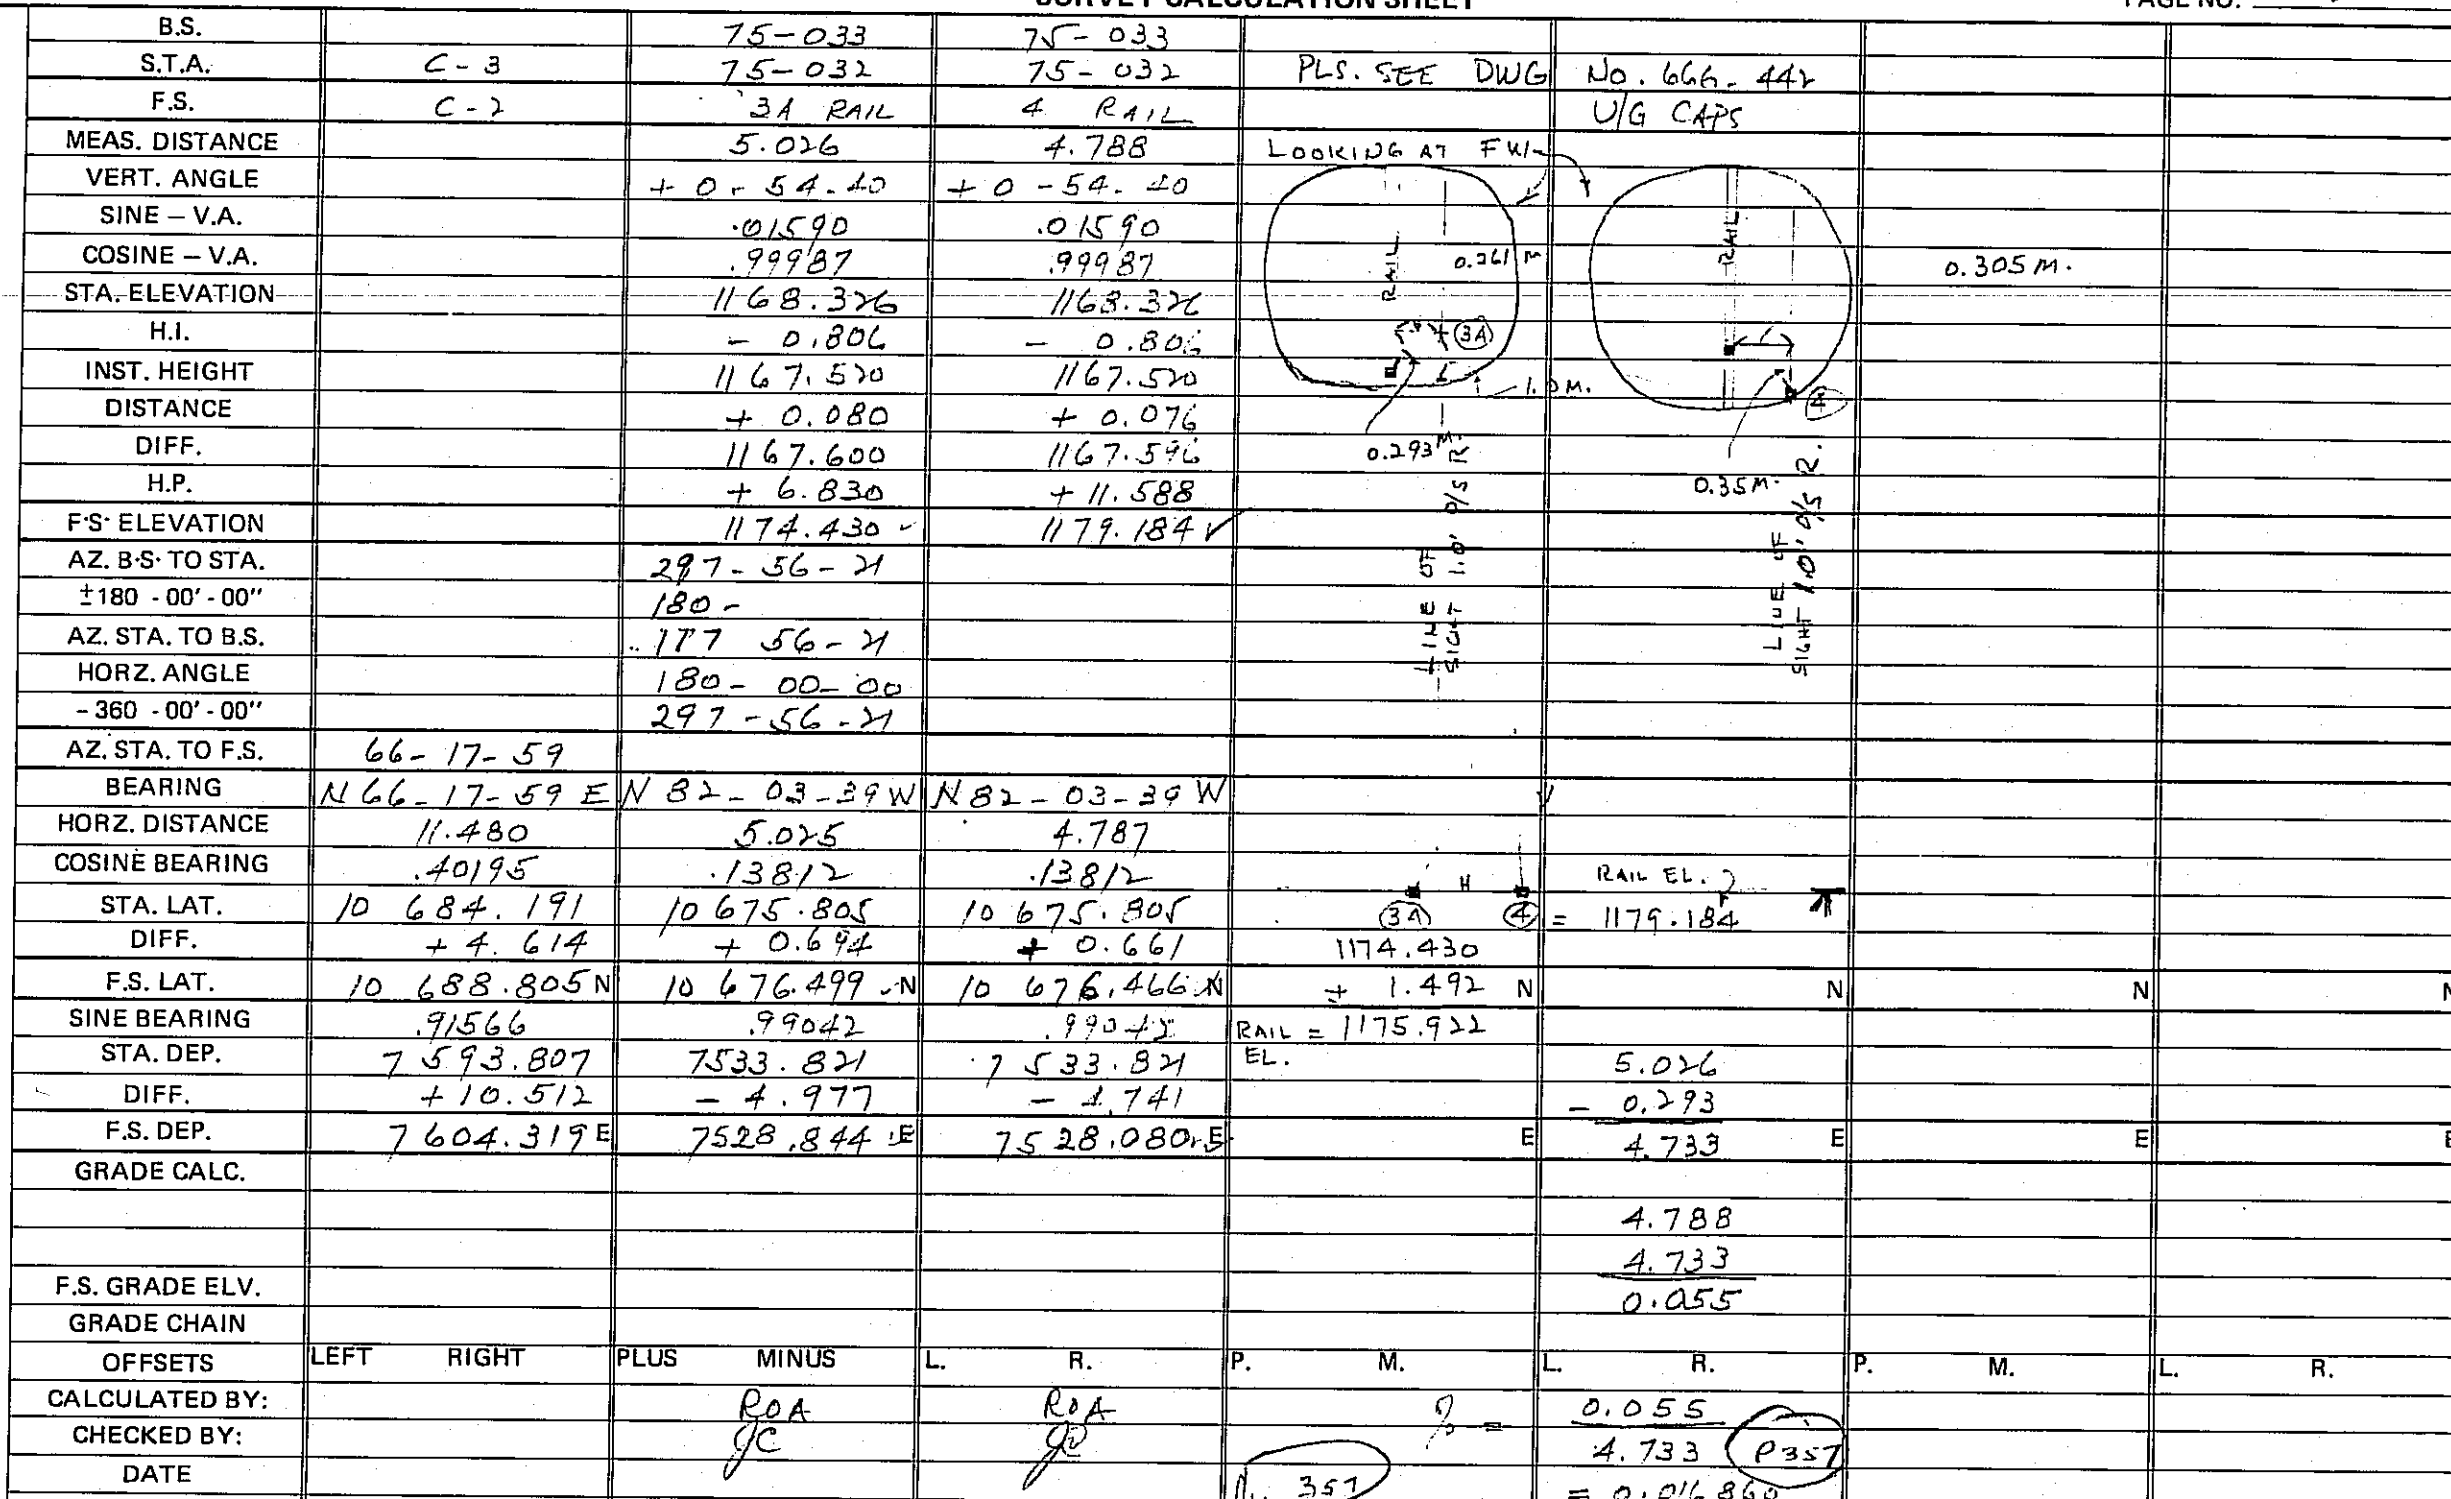 SURVEY CALCULATION SHEET
PAGE NO.
B.S. 75-033 75-033
S.T.A. C-3 75-032 75-032 PLS. SEE DWG No. 666-442
F.S. C-2 3A RAIL 4 RAIL U/G CAPS
MEAS. DISTANCE 5.026 4.788 LOOKING AT FW
VERT. ANGLE +0-54.40 +0-54.40
SINE – V.A. .01590 .01590
RAIL RAIL
COSINE – V.A. .99987 .99987 0.261 M 0.305 M.
STA. ELEVATION 1168.326 1168.326
H.I. - 0.806 - 0.806 3A
INST. HEIGHT 1167.520 1167.520 1.0 M.
DISTANCE + 0.080 + 0.076 4
DIFF. 1167.600 1167.596 0.293 M.
H.P. + 6.830 + 11.588 0.35 M.
F.S. ELEVATION 1174.430 1179.184 ✓
LINE OF SIGHT 1.0' O/S R.
LINE OF SIGHT 1.0' O/S R.
AZ. B.S. TO STA. 297-56-21
±180 -00'-00" 180-
AZ. STA. TO B.S. 117 56-21
HORZ. ANGLE 180-00-00
-360 -00'-00" 297-56-21
AZ. STA. TO F.S. 66-17-59
BEARING N 66-17-59 E N 82-03-39 W N 82-03-39 W
HORZ. DISTANCE 11.480 5.025 4.787
COSINE BEARING .40195 .13812 .13812 RAIL EL.
STA. LAT. 10 684.191 10 675.805 10 675.805 3A 4 = 1179.184
DIFF. + 4.614 + 0.694 + 0.661 1174.430
F.S. LAT. 10 688.805 N 10 676.499 N 10 676.466 N + 1.492 N N N N
SINE BEARING .91566 .99042 .99042 RAIL = 1175.922
STA. DEP. 7 593.807 7533.821 7 533.821 EL. 5.026
DIFF. + 10.512 - 4.977 - 4.741 - 0.293
F.S. DEP. 7 604.319 E 7528.844 E 7528.080 E E 4.733 E E E
GRADE CALC.
4.788
4.733
F.S. GRADE ELV. 0.055
GRADE CHAIN
OFFSETS LEFT RIGHT PLUS MINUS L. R. P. M. L. R. P. M. L. R.
CALCULATED BY: ROA ROA % = 0.055
CHECKED BY: JC 4.733 P357
DATE 357 = 0.016860